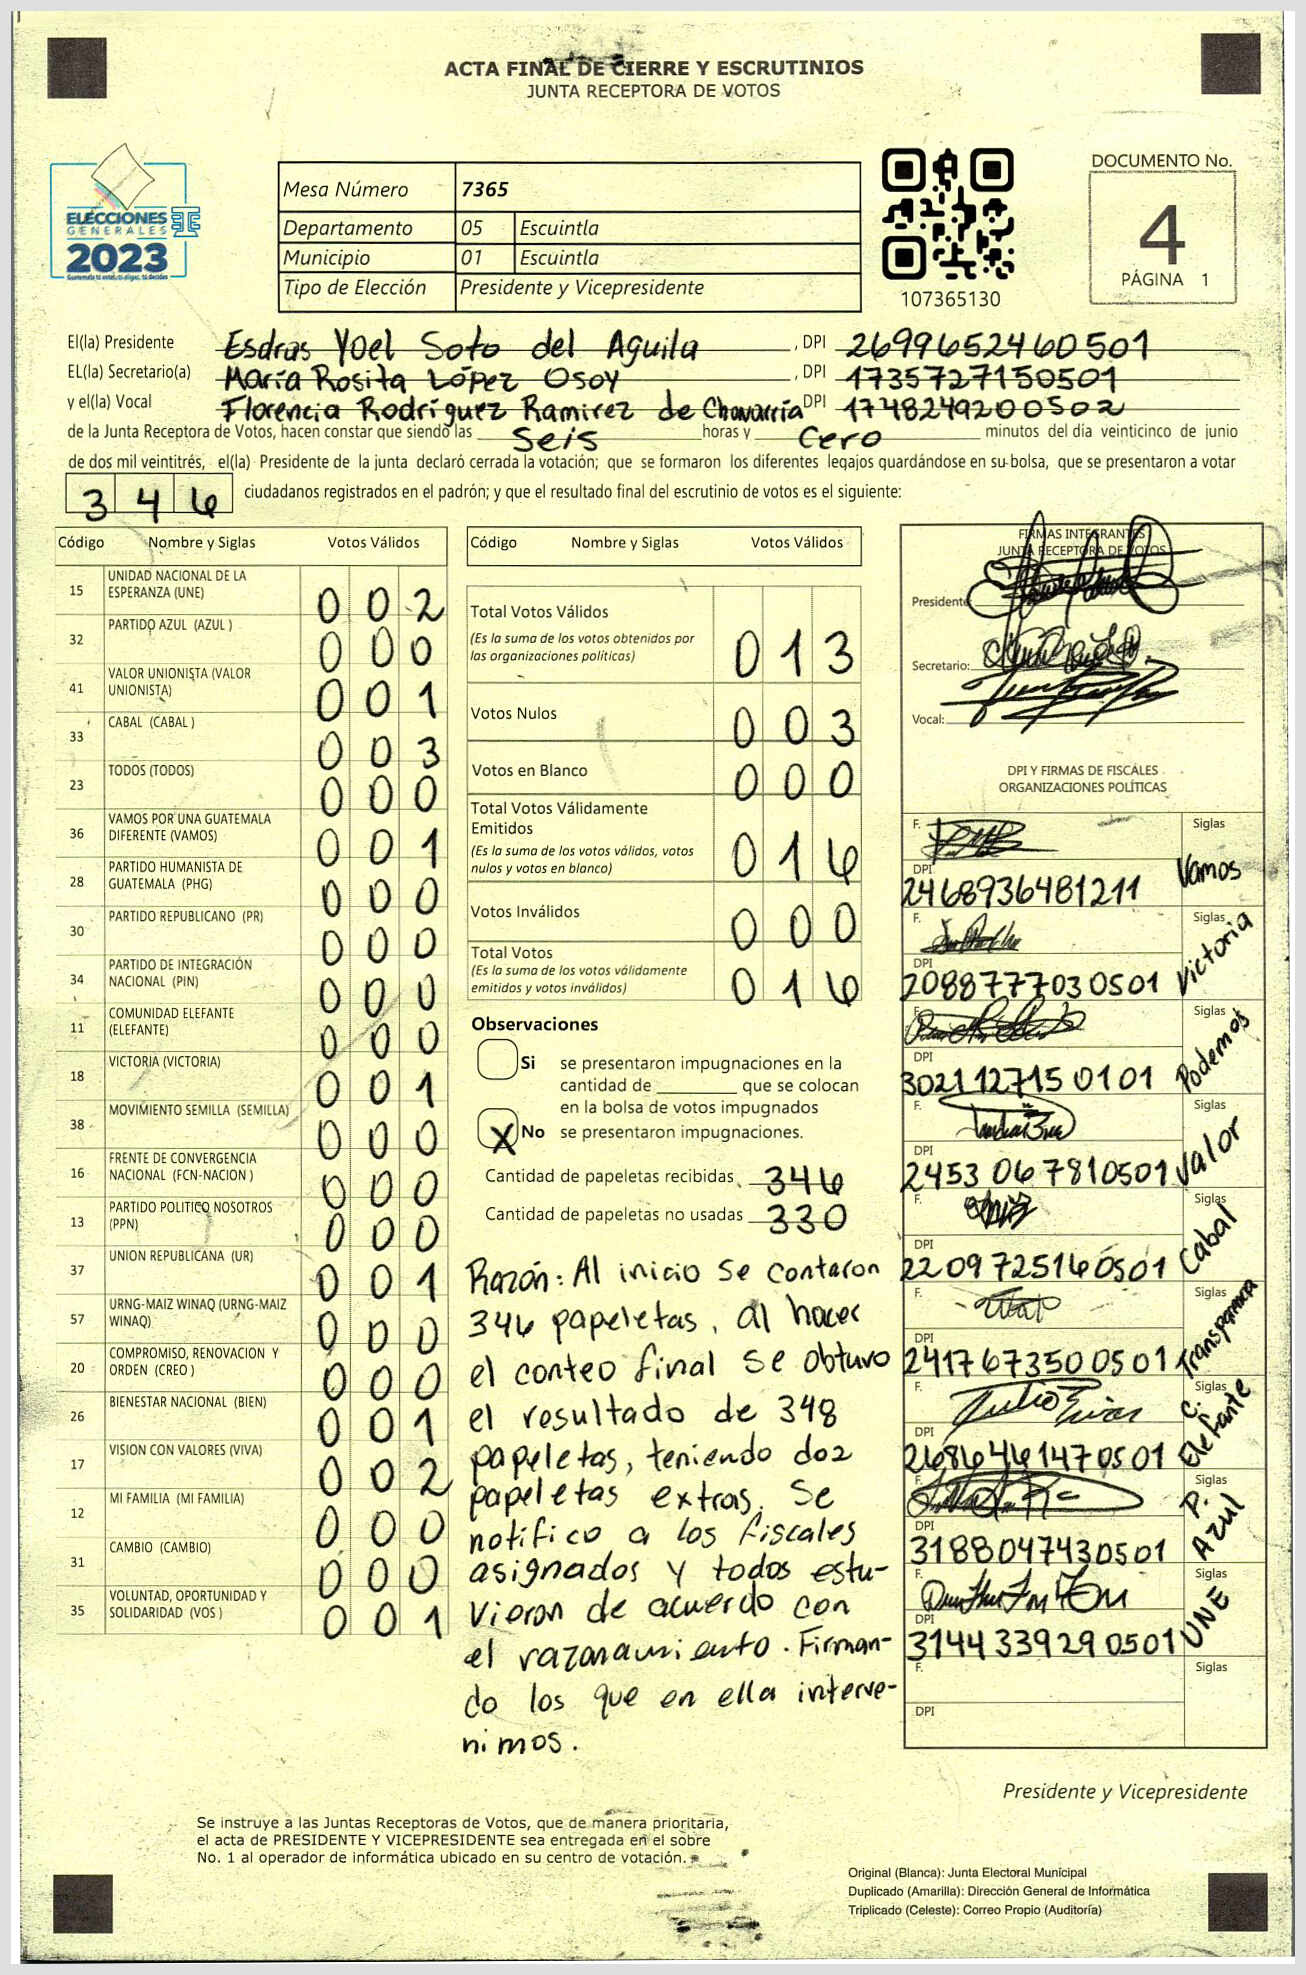 ACTA FINAL DE CIERRE Y ESCRUTINIOS
JUNTA RECEPTORA DE VOTOS
ELECCIONES
GENERALES
2023
Mesa Número 7365
Departamento 05 Escuintla
Municipio 01 Escuintla
Tipo de Elección Presidente y Vicepresidente
107365130
DOCUMENTO No.
4
PÁGINA 1
El(la) Presidente Esdras Yoel Soto del Aguila, DPI 2699652460501
EL(la) Secretario(a) María Rosita López Osoy, DPI 1735727150501
y el(la) Vocal Florencia Rodríguez Ramirez de Chavarría DPI 1748249200502
de la Junta Receptora de Votos, hacen constar que siendo las Seis horas y Cero minutos del día veinticinco de junio
de dos mil veintitrés, el(la) Presidente de la junta declaró cerrada la votación; que se formaron los diferentes legajos guardándose en su bolsa, que se presentaron a votar
346 ciudadanos registrados en el padrón; y que el resultado final del escrutinio de votos es el siguiente:
Código Nombre y Siglas Votos Válidos
15 UNIDAD NACIONAL DE LA ESPERANZA (UNE) 002
32 PARTIDO AZUL (AZUL ) 000
41 VALOR UNIONISTA (VALOR UNIONISTA) 001
33 CABAL (CABAL ) 003
23 TODOS (TODOS) 000
36 VAMOS POR UNA GUATEMALA DIFERENTE (VAMOS) 001
28 PARTIDO HUMANISTA DE GUATEMALA (PHG) 000
30 PARTIDO REPUBLICANO (PR) 000
34 PARTIDO DE INTEGRACIÓN NACIONAL (PIN) 000
11 COMUNIDAD ELEFANTE (ELEFANTE) 000
18 VICTORIA (VICTORIA) 001
38 MOVIMIENTO SEMILLA (SEMILLA) 000
16 FRENTE DE CONVERGENCIA NACIONAL (FCN-NACION ) 000
13 PARTIDO POLITICO NOSOTROS (PPN) 000
37 UNION REPUBLICANA (UR) 001
57 URNG-MAIZ WINAQ (URNG-MAIZ WINAQ) 000
20 COMPROMISO, RENOVACION Y ORDEN (CREO ) 000
26 BIENESTAR NACIONAL (BIEN) 001
17 VISION CON VALORES (VIVA) 002
12 MI FAMILIA (MI FAMILIA) 000
31 CAMBIO (CAMBIO) 000
35 VOLUNTAD, OPORTUNIDAD Y SOLIDARIDAD (VOS ) 001
Código Nombre y Siglas Votos Válidos
Total Votos Válidos 013
(Es la suma de los votos obtenidos por
las organizaciones políticas)
Votos Nulos 003
Votos en Blanco 000
Total Votos Válidamente
Emitidos 016
(Es la suma de los votos válidos, votos
nulos y votos en blanco)
Votos Inválidos 000
Total Votos 016
(Es la suma de los votos válidamente
emitidos y votos inválidos)
Observaciones
Si se presentaron impugnaciones en la
cantidad de ________ que se colocan
en la bolsa de votos impugnados
X No se presentaron impugnaciones.
Cantidad de papeletas recibidas 346
Cantidad de papeletas no usadas 330
Razón: Al inicio se contaron
346 papeletas, al hacer
el conteo final se obtuvo
el resultado de 348
papeletas, teniendo dos
papeletas extras. Se
notifico a los fiscales
asignados y todos estu-
vieron de acuerdo con
el razonamiento. Firman-
do los que en ella interve-
nimos.
FIRMAS INTEGRANTES
JUNTA RECEPTORA DE VOTOS
Presidente:
Secretario:
Vocal:
DPI Y FIRMAS DE FISCALES
ORGANIZACIONES POLÍTICAS
F. Siglas
DPI
2468936481211 Vamos
F. Siglas
DPI
2088777030501 Victoria
F. Siglas
DPI
3021127150101 Podemos
F. Siglas
DPI
2453067810501 Valor
F. Siglas
DPI
2209725160501 Cabal
F. Siglas
DPI
2417673500501
F. Siglas
DPI
2686461470501 C. Elefante
F. Siglas
DPI
3188047430501 P. Azul
F. Siglas
DPI
3144339290501 UNE
F. Siglas
DPI
Presidente y Vicepresidente
Se instruye a las Juntas Receptoras de Votos, que de manera prioritaria,
el acta de PRESIDENTE Y VICEPRESIDENTE sea entregada en el sobre
No. 1 al operador de informática ubicado en su centro de votación.
Original (Blanca): Junta Electoral Municipal
Duplicado (Amarilla): Dirección General de Informática
Triplicado (Celeste): Correo Propio (Auditoría)